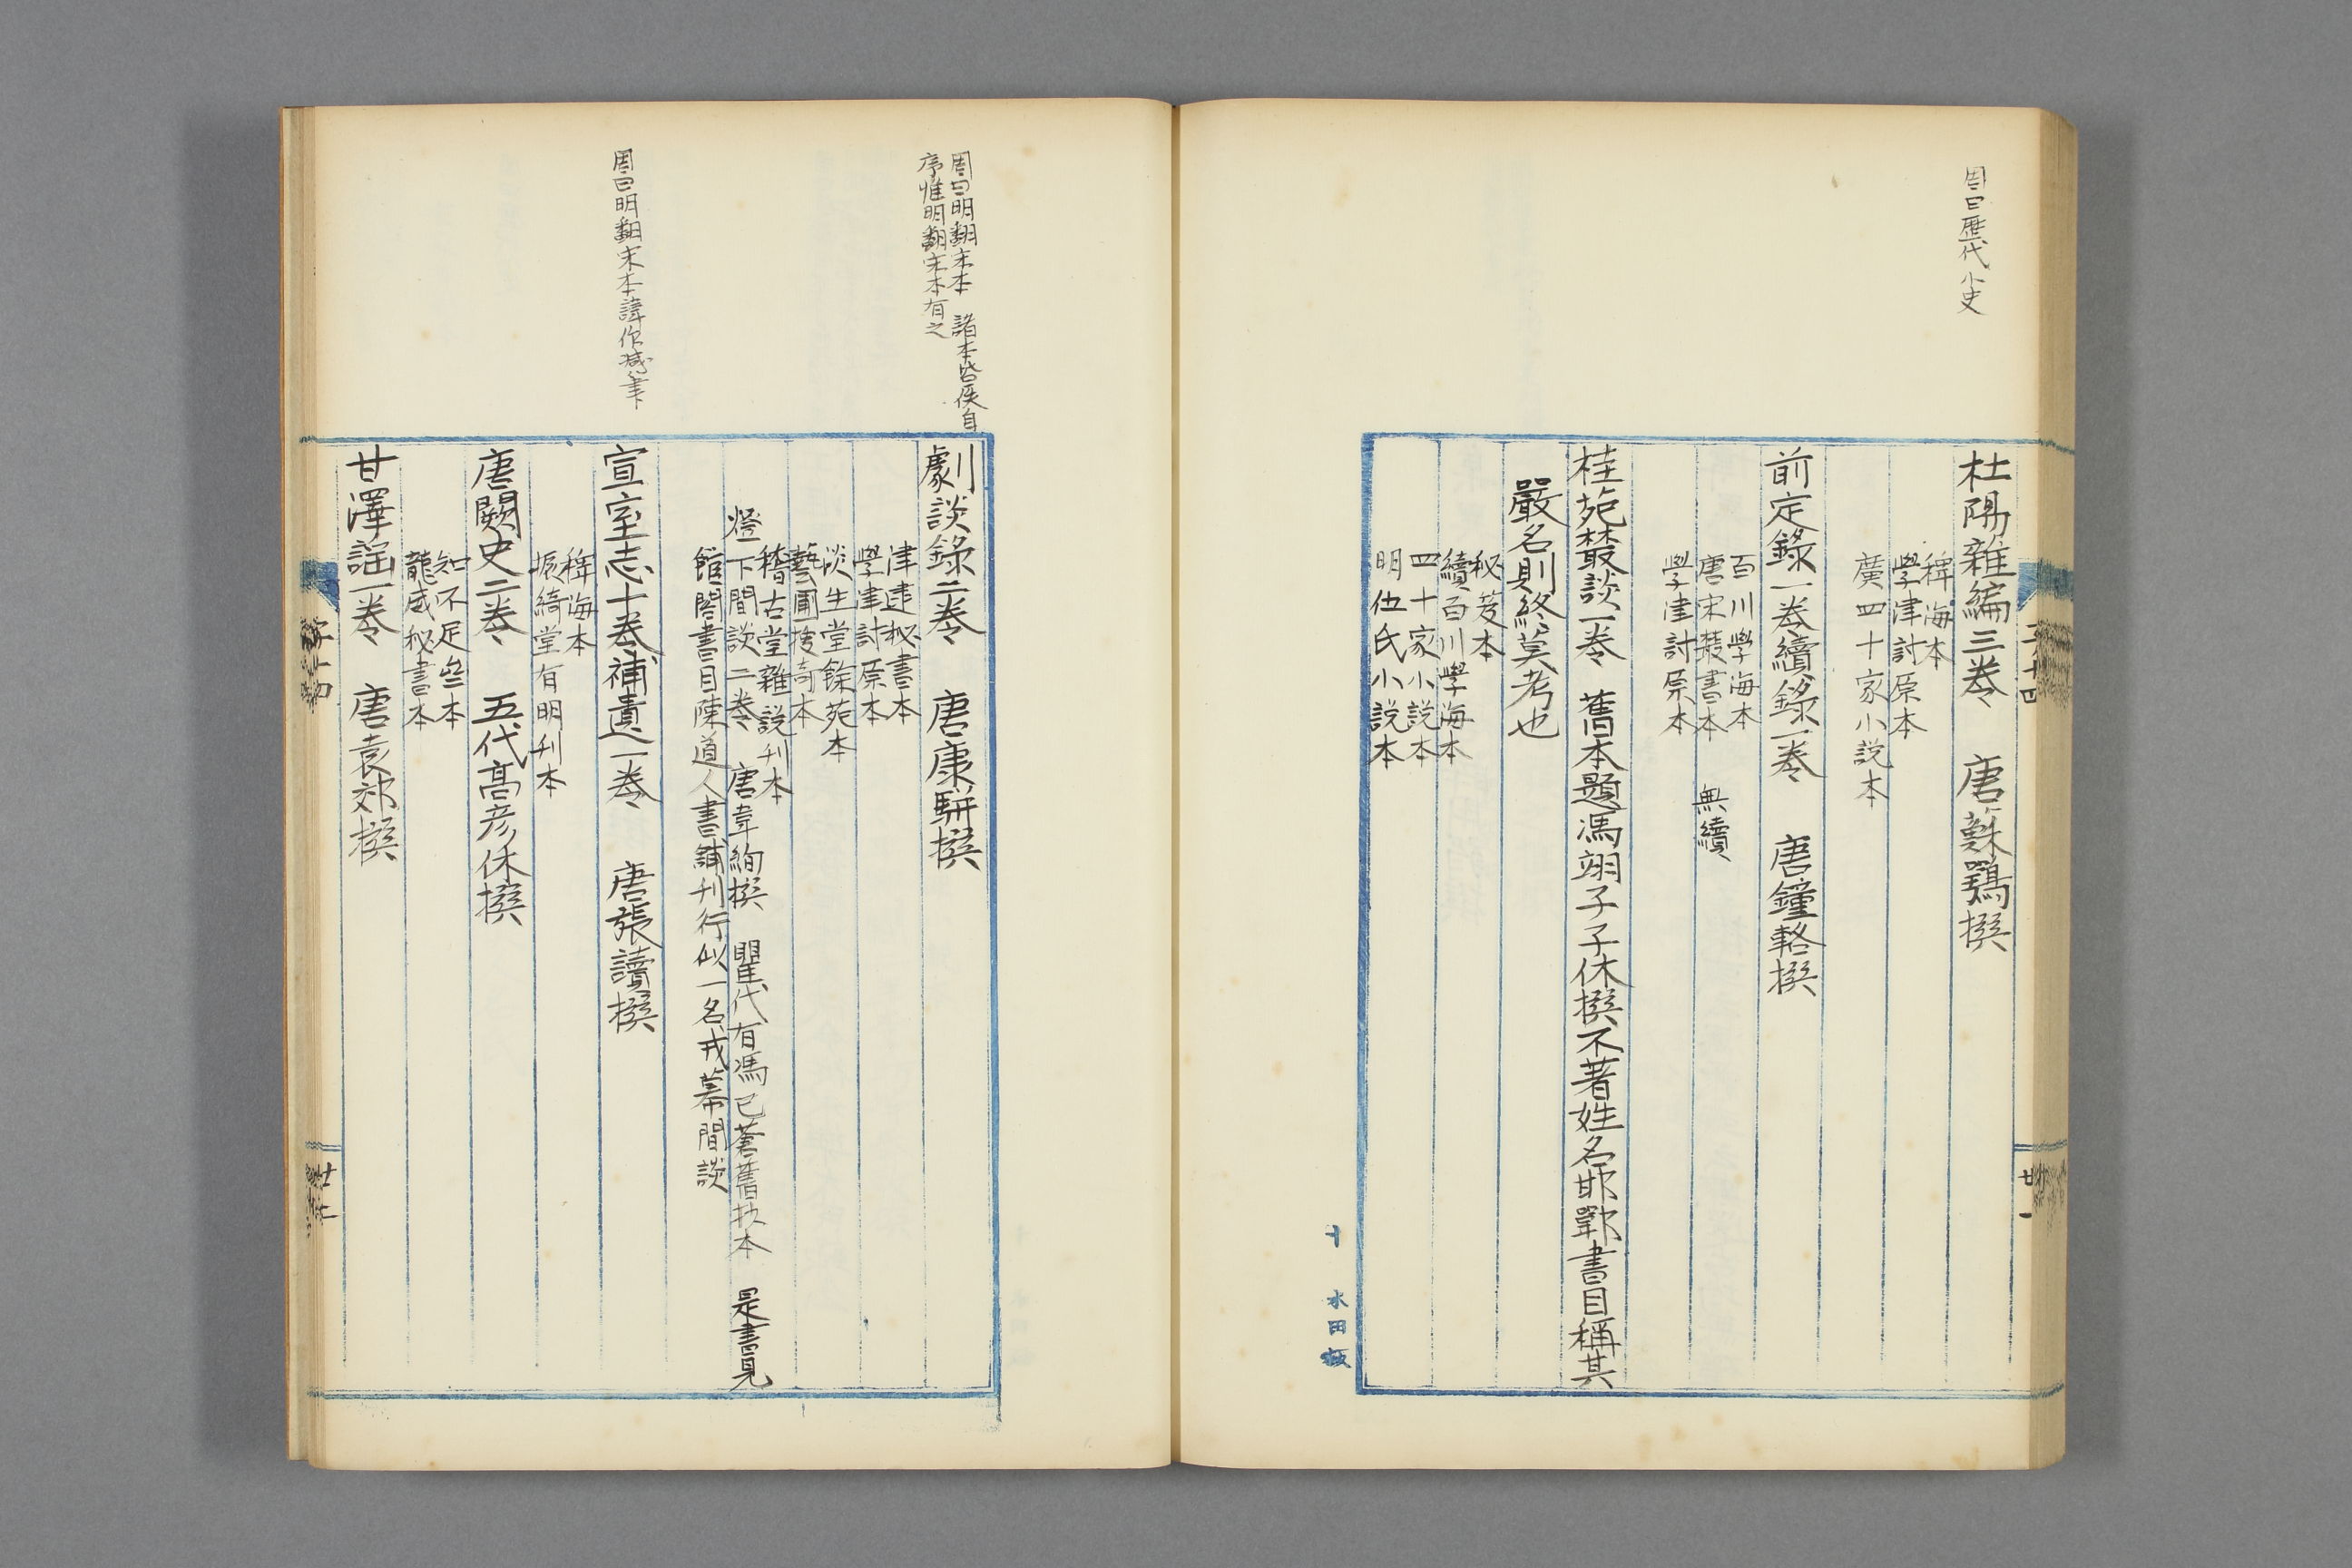 周曰歷代小史
杜陽雜編三卷 唐蘇鶚撰
稗海本
學津討原本
廣四十家小説本
前定錄一卷續錄一卷 唐鐘輅撰
百川學海本
唐宋叢書本 無續
學津討原本
桂苑叢談一卷 舊本題馮翊子子休撰不著姓名邯鄲書目稱其
嚴名則終莫考也
秘笈本
續百川學海本
四十家小説本
明伍氏小説本
廿一
十 水田
周曰明翻宋本 諸本皆佚自
序惟明翻宋本有之
劇談錄二卷 唐康駢撰
津逮秘書本
學津討原本
淡生堂餘苑本
藝圃搜奇本
稽古堂雜説刊本
燈下閒談二卷 唐韋絢撰 瞿氏有馮已蒼舊抄本 是書見
館閣書目陳道人書鋪刊行似一名戎幕閒談
周曰明翻宋本諱作減筆
宣室志十卷補遺一卷 唐張讀撰
稗海本
振綺堂有明刊本
唐闕史二卷 五代高彦休撰
知不足齋本
龍威秘書本
甘澤謡一卷 唐袁郊撰